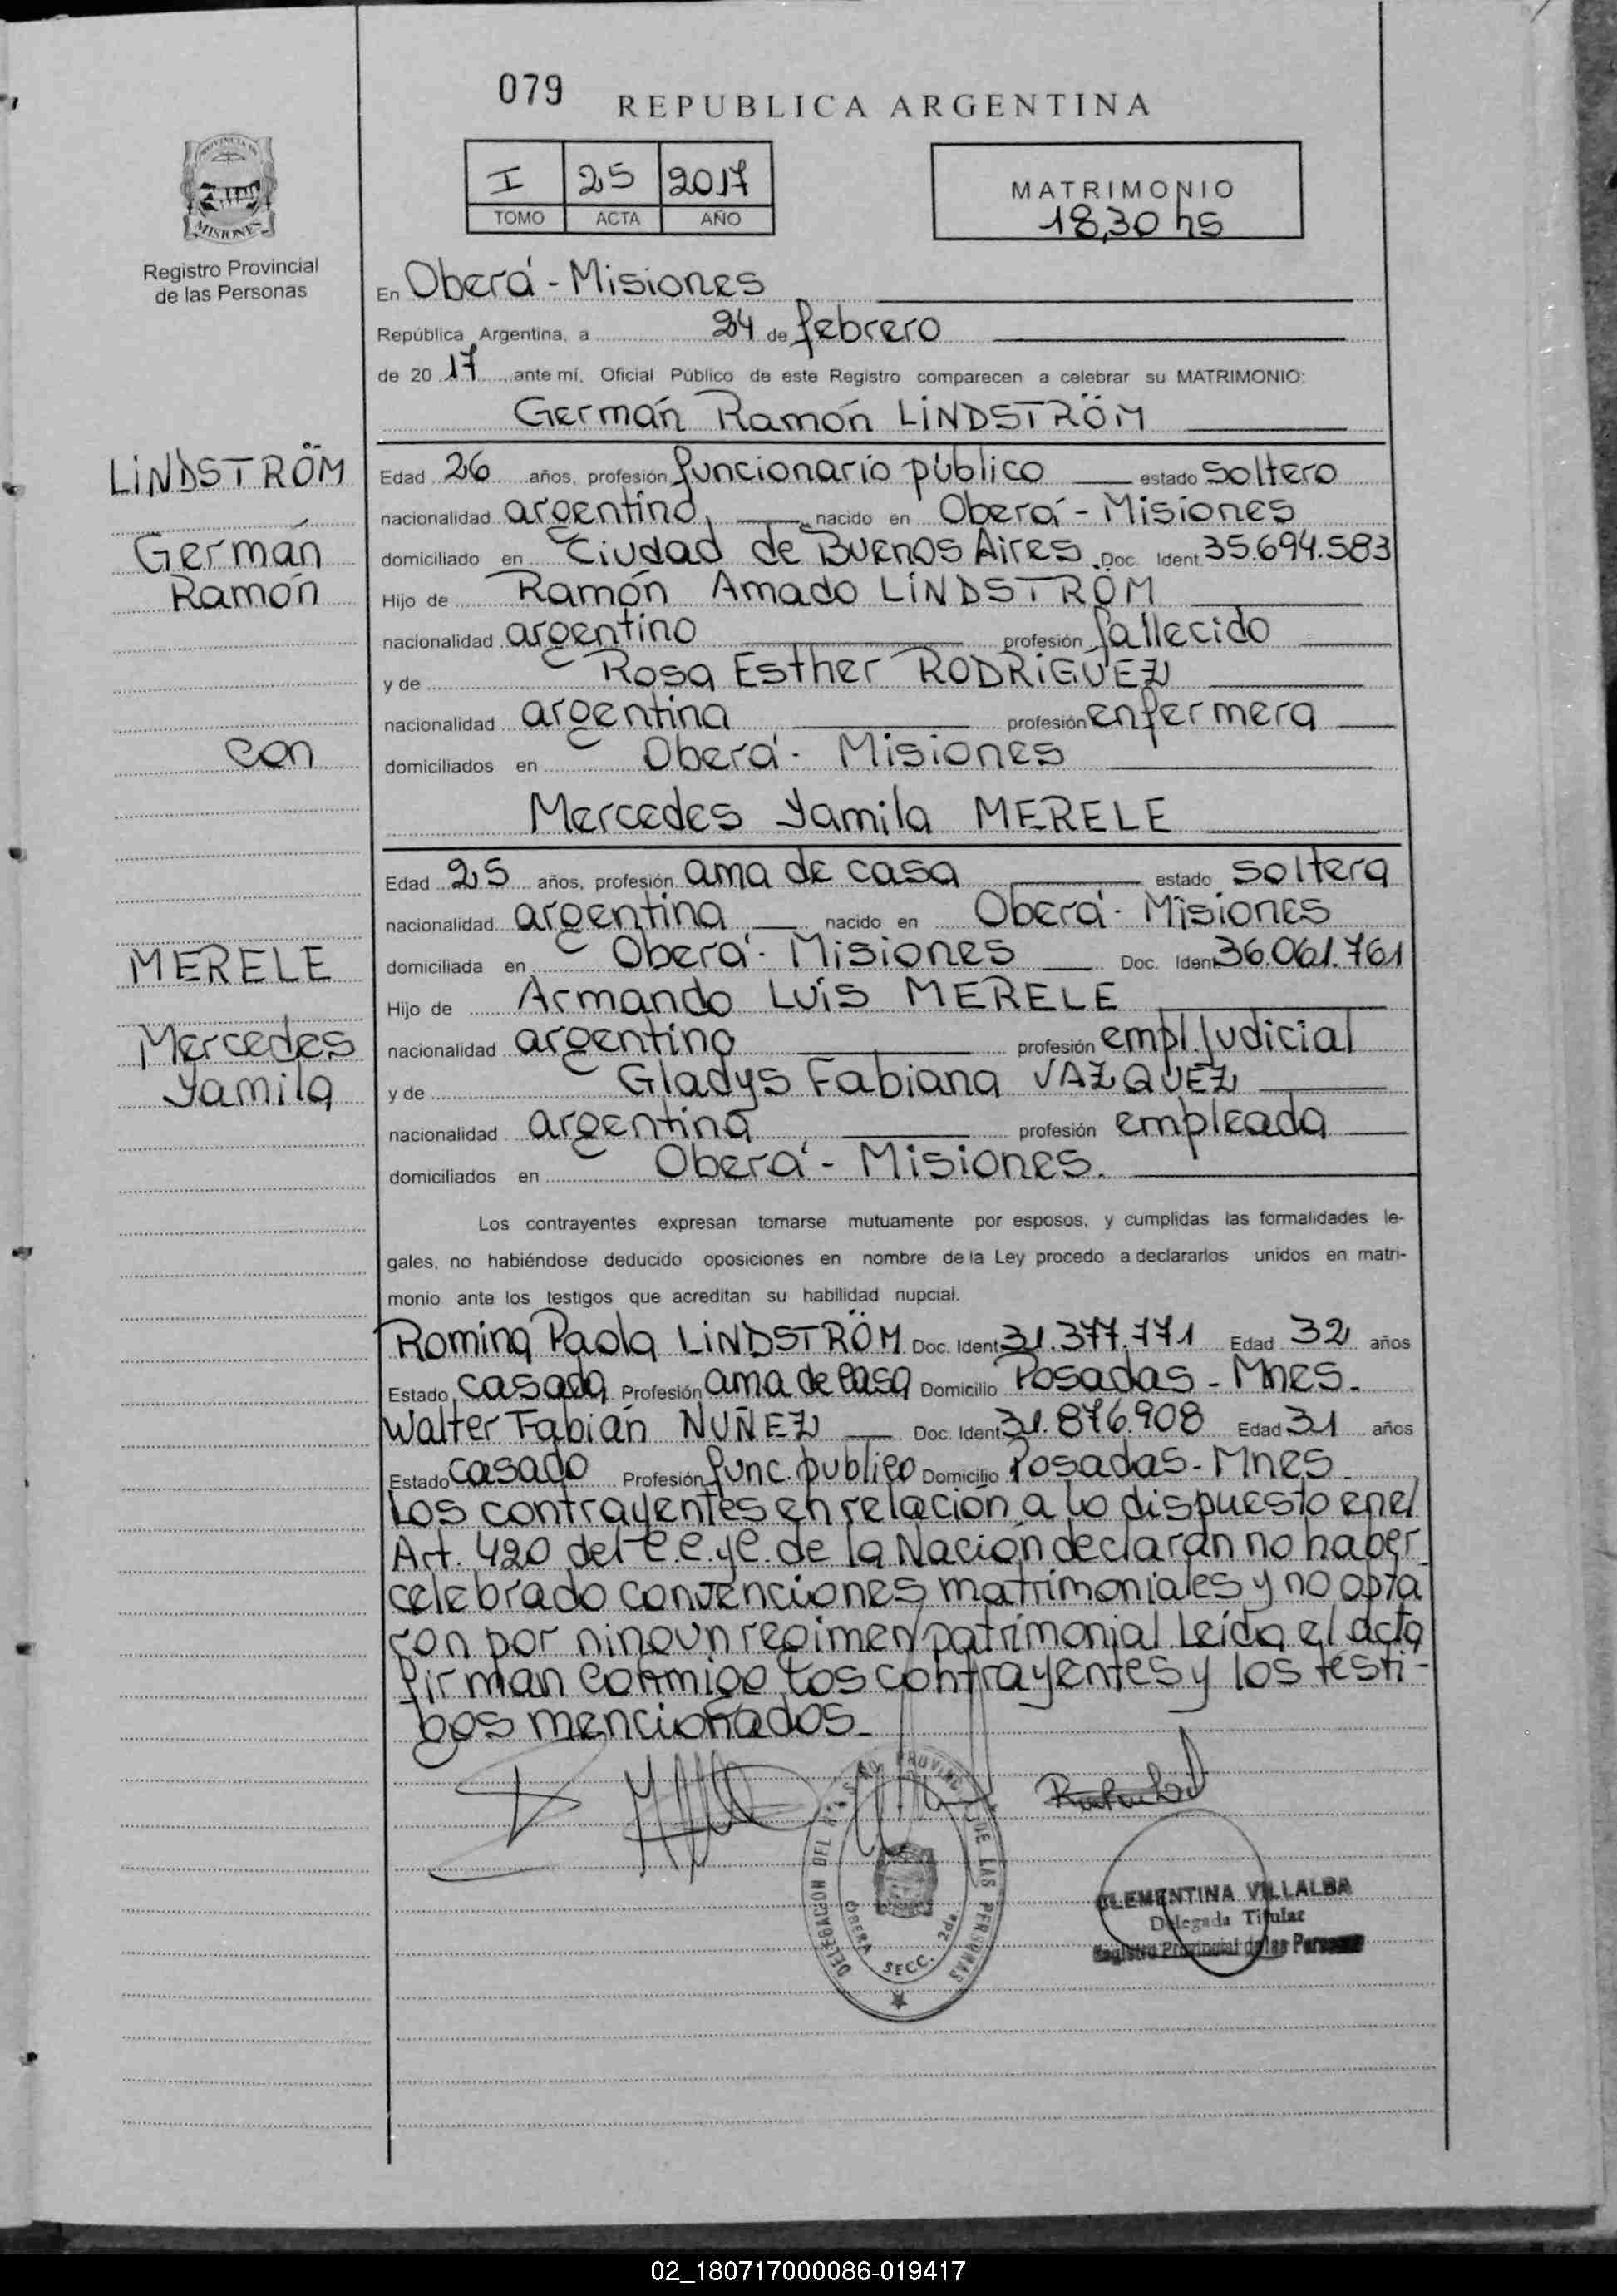 079
REPUBLICA ARGENTINA
PROVINCIA DE
MISIONES
Registro Provincial
de las Personas
I 25 2017
TOMO ACTA AÑO
MATRIMONIO
18,30 hs
En Oberá - Misiones
República Argentina, a 24 de febrero
de 20 17 ante mí, Oficial Público de este Registro comparecen a celebrar su MATRIMONIO:
Germán Ramón LINDSTRÖM
LINDSTRÖM
Germán
Ramón
con
MERELE
Mercedes
Yamila
Edad 26 años, profesión funcionario público estado soltero
nacionalidad argentino, nacido en Oberá - Misiones
domiciliado en Ciudad de Buenos Aires Doc. Ident. 35.694.583
Hijo de Ramón Amado LINDSTRÖM
nacionalidad argentino profesión fallecido
y de Rosa Esther RODRIGUEZ
nacionalidad argentina profesión enfermera
domiciliados en Oberá - Misiones
Mercedes Yamila MERELE
Edad 25 años, profesión ama de casa estado soltera
nacionalidad argentina nacido en Oberá - Misiones
domiciliada en Oberá - Misiones Doc. Ident 36.061.761
Hijo de Armando Luis MERELE
nacionalidad argentino profesión empl. Judicial
y de Gladys Fabiana VAZQUEZ
nacionalidad argentina profesión empleada
domiciliados en Oberá - Misiones.
Los contrayentes expresan tomarse mutuamente por esposos, y cumplidas las formalidades le-
gales, no habiéndose deducido oposiciones en nombre de la Ley procedo a declararlos unidos en matri-
monio ante los testigos que acreditan su habilidad nupcial.
Romina Paola LINDSTRÖM Doc. Ident 31.377.771 Edad 32 años
Estado casada Profesión ama de casa Domicilio Posadas - Mnes.
Walter Fabián NUÑEZ Doc. Ident 31.876.908 Edad 31 años
Estado casado Profesión func. publico Domicilio Posadas - Mnes
Los contrayentes en relación a lo dispuesto en el
Art. 420 del C.C. y C. de la Nación declaran no haber
celebrado convenciones matrimoniales y no opta
ron por ningun regimen patrimonial Leída el acta
firman conmigo los contrayentes y los testi-
gos mencionados.
DELEGACION DEL REGISTRO PROVINCIAL DE LAS PERSONAS
OBERA SECC. 2da
CLEMENTINA VILLALBA
Delegada Titular
Registro Provincial de las Personas
02_180717000086-019417